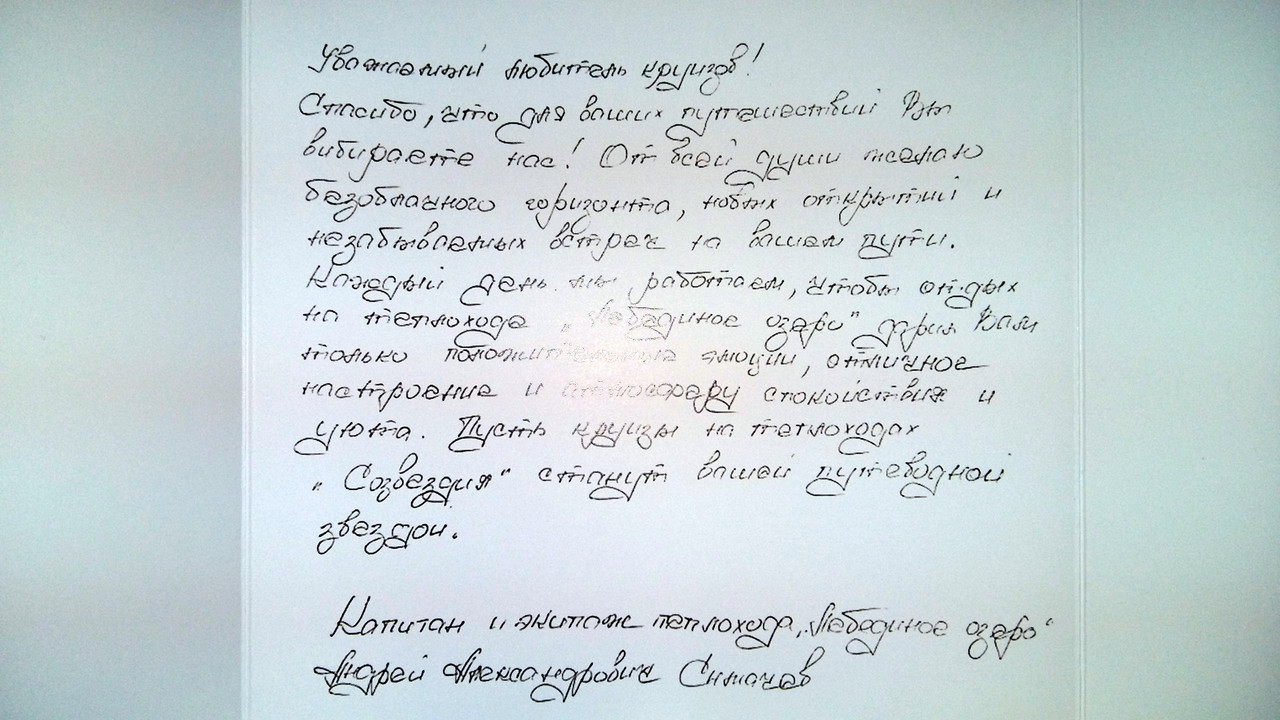 Уважаемый любитель круизов!
Спасибо, что для ваших путешествий Вы
выбираете нас! От всей души желаю
безоблачного горизонта, новых открытий и
незабываемых встреч на вашем пути.
Каждый день мы работаем, чтобы отдых
на теплохода „Лебединое озеро" дарил Вам
только положительные эмоции, отличное
настроение и атмосферу спокойствия и
уюта. Пусть круизы на теплоходах
„Созвездия" станут вашей путеводной
звездой.
Капитан и экипаж теплохода „Лебединое озеро"
Андрей Александрович Симачёв